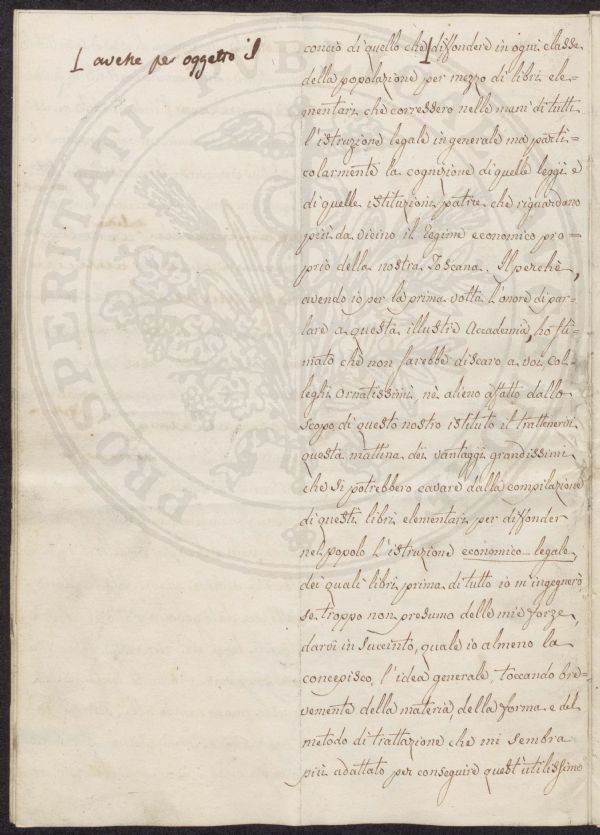 ⌊ avente per oggetto il
concio di quello che ⌊ diffondere in ogni classe
della popolazione per mezzo di libri ele=
mentari che corressero nelle mani di tutti
l'istruzione legale in generale ma parti=
colarmente la cognizione di quelle leggi e
di quelle istituzioni patrie che riguardano
più da vicino il Regime economico pro=
prio della nostra Toscana. Il perchè,
avendo io per la prima volta l'onore di par=
lare a questa illustre Accademia, ho sti=
mato che non sarebbe discaro a voi, Col=
leghi Ornatissimi, nè alieno affatto dallo
scopo di questo nostro istituto il trattenervi
questa mattina dei vantaggi grandissimi
che si potrebbero cavare dalla compilazione
di questi libri elementari per diffonder
nel popolo l'istruzione economico-legale,
dei quali libri prima di tutto io m'ingegnerò,
se troppo non presumo delle mie forze,
darvi in succinto, quale io almeno la
concepisco, l'idea generale, toccando bre=
vemente della materia, della forma e del
metodo di trattazione che mi sembra
più adattato per conseguire quest'utilissimo
PROSPERITATI PUBLICAE